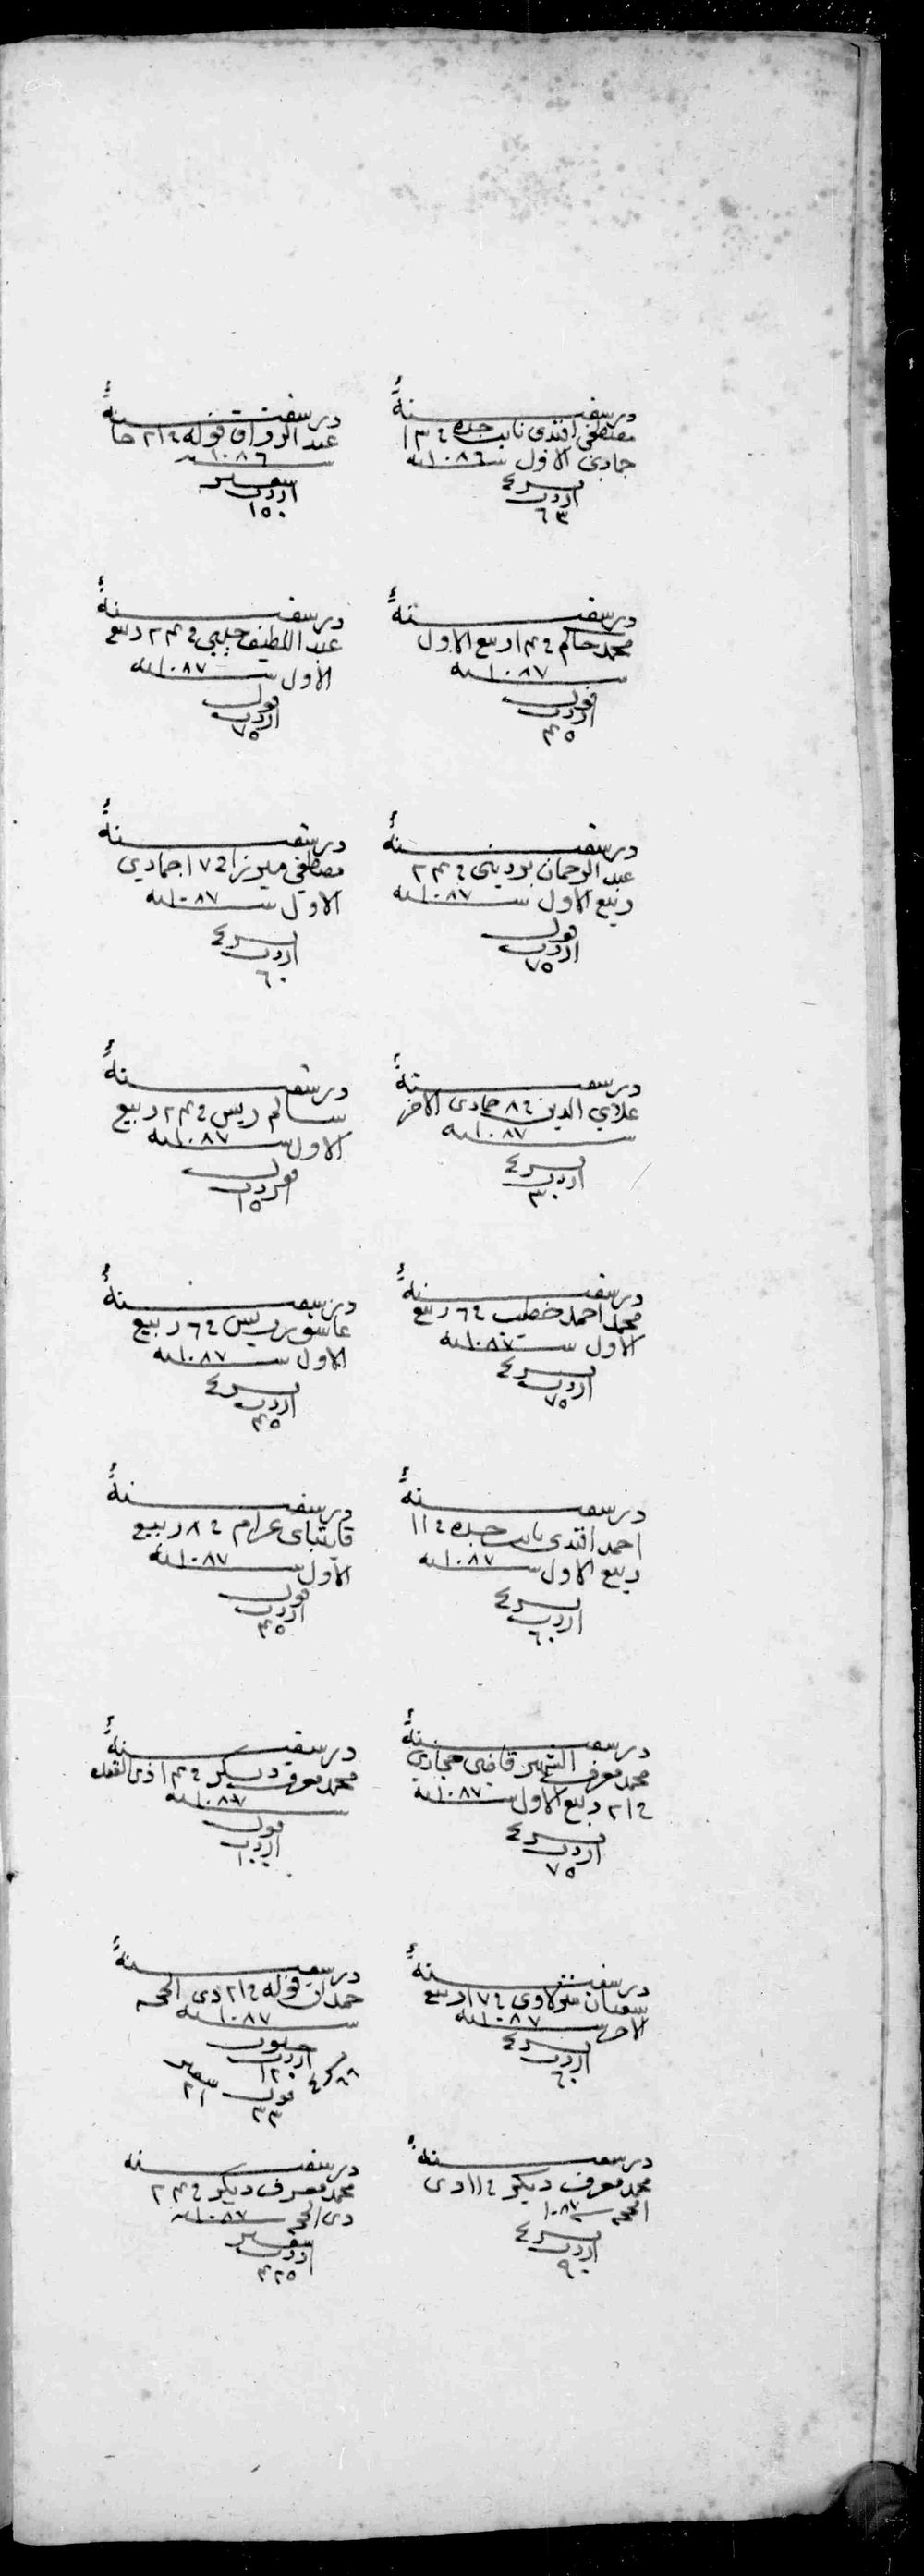 در سفينة
مصطفى افندى نائب جده فى ١٣
جمادى الاول سنه ١٠٨٦
اردب
٦٣
در سفينة
عبد الرزاق قوله فى ٢١ جا
سنه ١٠٨٦
شعير
اردب
١٥٠
در سفينة
محمد حاكم فى ١٤ ربيع الاول
سنه ١٠٨٧
فول
اردب
٤٥
در سفينة
عبد اللطيف چلبي فى ٢٤ ربيع
الاول سنه ١٠٨٧
فول
اردب
٧٥
در سفينة
عبد الرحمان فى ٢٤
ربيع الاول سنه ١٠٨٧
فول
اردب
٧٥
در سفينة
مصطفى ميرزا فى ١٧ جمادي
الاول سنه ١٠٨٧
اردب
٦٠
در سفينة
علاي الدين فى ٨ جمادى الاخر
سنه ١٠٨٧
اردب
٣٠
در سفينة
سالم ريس فى ٢٤ ربيع
الاول سنه ١٠٨٧
فول
اردب
١٥
در سفينة
محمد احمد خطيب فى ٦ ربيع
الاول سنه ١٠٨٧
اردب
٧٥
در سفينة
عاشور ريس فى ٦ ربيع
الاول سنه ١٠٨٧
اردب
٤٥
در سفينة
احمد افندى نائب جده فى ١١
ربيع الاول سنه ١٠٨٧
اردب
٦٠
در سفينة
قايتباى عزام فى ٨ ربيع
الاول سنه ١٠٨٧
فول
اردب
٤٥
در سفينة
محمد معرف الشهير قاضى حجازى
فى ٢١ ربيع الاول سنه ١٠٨٧
اردب
٧٥
در سفينة
محمد معرف ديكر فى ١٤ ذى القعده
سنه ١٠٨٧
فول
اردب
در سفينة
شعبان فى ١٧ ربيع
الاخر سنه ١٠٨٧
اردب
٦٠
در سفينة
حمدان قوله فى ٢١ ذى الحجه
سنه ١٠٨٧
حبوب
اردب
١٢٠
فول
٣٣
شعير
٢١
در سفينه
محمد معرف ديكر فى ١١ ذى
الحجه سنه ١٠٨٧
اردب
٩٠
در سفينه
محمد معرف ديكر فى ٢٤
ذى الحجه سنه ١٠٨٧
شعير
اردب
٤٢٥